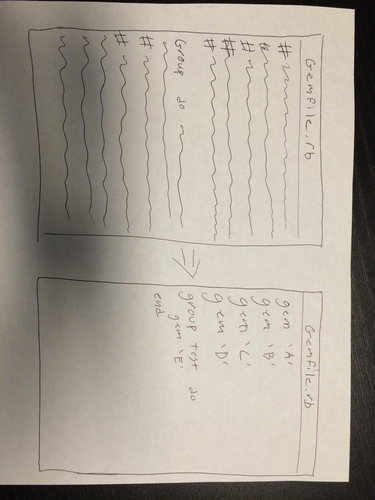 Gemfile.rb
#
#
#
#
#
Group do
#
#
Gemfile.rb
gem 'A'
gem 'B'
gem 'C'
gem 'D'
group test do
gem 'E'
end